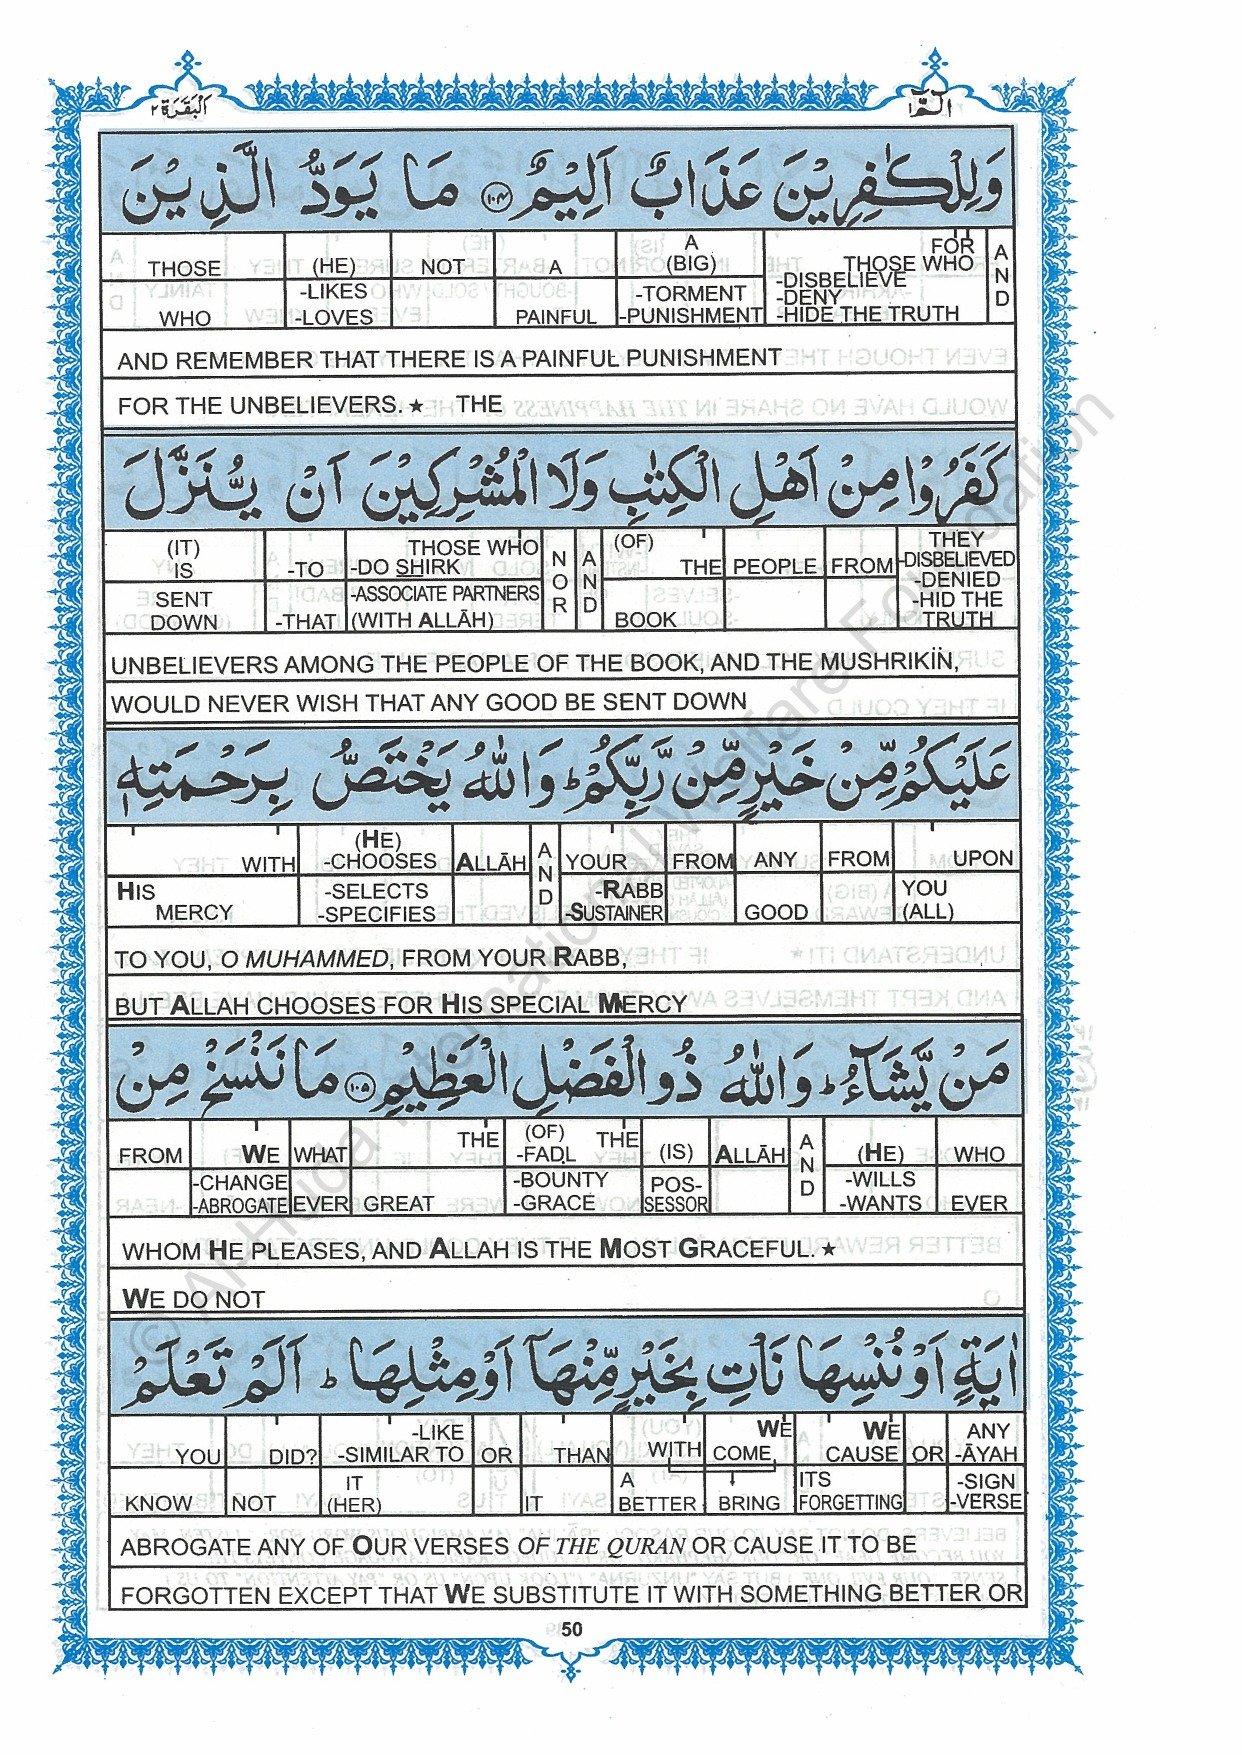 اَلْبَقَرَة ٢
الٓمّٓ ١
وَلِلْكٰفِرِيْنَ عَذَابٌ اَلِيْمٌ ۝١٠٤ مَا يَوَدُّ الَّذِيْنَ
THOSE (HE) NOT A A (BIG) FOR THOSE WHO AND
WHO -LIKES -LOVES PAINFUL -TORMENT -PUNISHMENT -DISBELIEVE -DENY -HIDE THE TRUTH
AND REMEMBER THAT THERE IS A PAINFUL PUNISHMENT
FOR THE UNBELIEVERS. ★ THE
كَفَرُوْا مِنْ اَهْلِ الْكِتٰبِ وَلَا الْمُشْرِكِيْنَ اَنْ يُّنَزَّلَ
(IT) IS -TO THOSE WHO -DO SHIRK NOR AND (OF) THE PEOPLE FROM THEY -DISBELIEVED
SENT DOWN -THAT -ASSOCIATE PARTNERS (WITH ALLĀH) BOOK -DENIED -HID THE TRUTH
UNBELIEVERS AMONG THE PEOPLE OF THE BOOK, AND THE MUSHRIKIN,
WOULD NEVER WISH THAT ANY GOOD BE SENT DOWN
عَلَيْكُمْ مِّنْ خَيْرٍ مِّنْ رَّبِّكُمْ ؕ وَاللّٰهُ يَخْتَصُّ بِرَحْمَتِهٖ
WITH (HE) -CHOOSES ALLĀH AND YOUR FROM ANY FROM UPON
HIS MERCY -SELECTS -SPECIFIES -RABB -SUSTAINER GOOD YOU (ALL)
TO YOU, O MUHAMMED, FROM YOUR RABB,
BUT ALLAH CHOOSES FOR HIS SPECIAL MERCY
مَنْ يَّشَآءُ ؕ وَاللّٰهُ ذُو الْفَضْلِ الْعَظِيْمِ ۝١٠٥ مَا نَنْسَخْ مِنْ
FROM WE WHAT THE (OF) THE -FADL (IS) ALLĀH AND (HE) WHO
-CHANGE -ABROGATE EVER GREAT -BOUNTY -GRACE POS-SESSOR -WILLS -WANTS EVER
WHOM HE PLEASES, AND ALLAH IS THE MOST GRACEFUL. ★
WE DO NOT
اٰيَةٍ اَوْ نُنْسِهَا نَاْتِ بِخَيْرٍ مِّنْهَآ اَوْ مِثْلِهَا ؕ اَلَمْ تَعْلَمْ
YOU DID? -LIKE -SIMILAR TO OR THAN WITH WE COME WE CAUSE OR ANY -ĀYAH
KNOW NOT IT (HER) IT A BETTER BRING ITS FORGETTING -SIGN -VERSE
ABROGATE ANY OF OUR VERSES OF THE QURAN OR CAUSE IT TO BE
FORGOTTEN EXCEPT THAT WE SUBSTITUTE IT WITH SOMETHING BETTER OR
50
© Al-Huda International Welfare Foundation